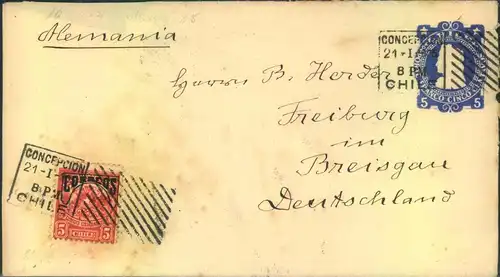 Alemania
CONCEPCION
21-I-
8 PM
CHILE
5 5
Herrn B. Herder
Freiburg
im
Breisgau
Deutschland
CONCEPCION
21-I-
8 P
CHILE
CORREOS
5 5